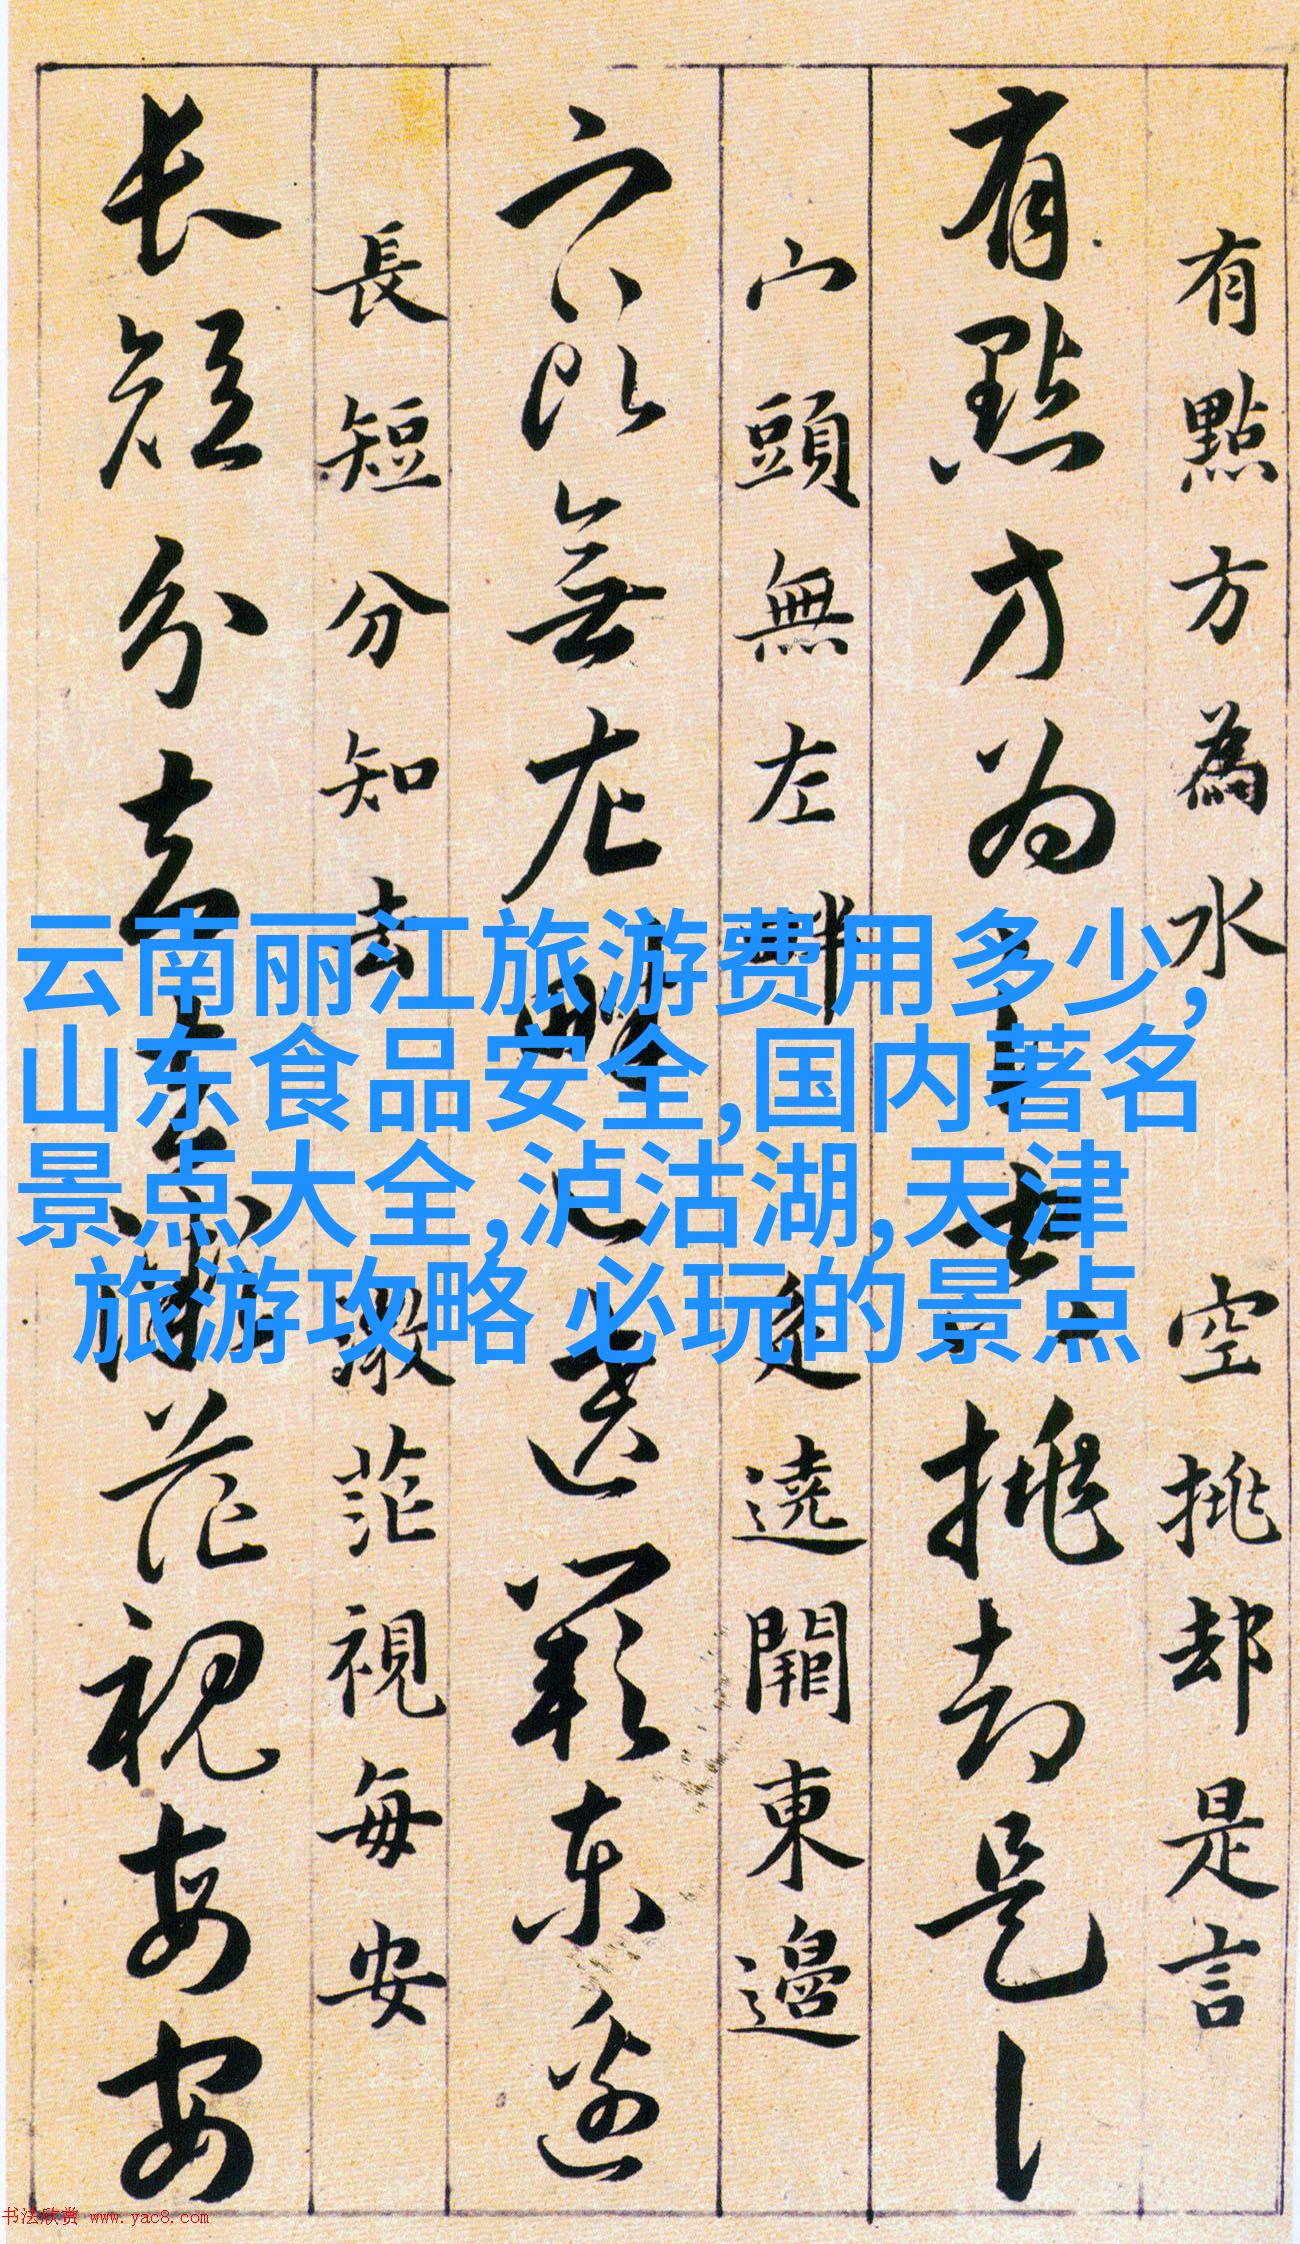 有點方為水空挑却是言
有點方為挑却是
宀頭無左畔辵遶東邊
頭無左畔遶東邊
長短分知去微茫視每安
長短分去茫視每安
云南丽江旅游费用多少,
山东食品安全,国内著名
景点大全,泸沽湖,天津
旅游攻略 必玩的景点
书法欣赏 www.yac8.com